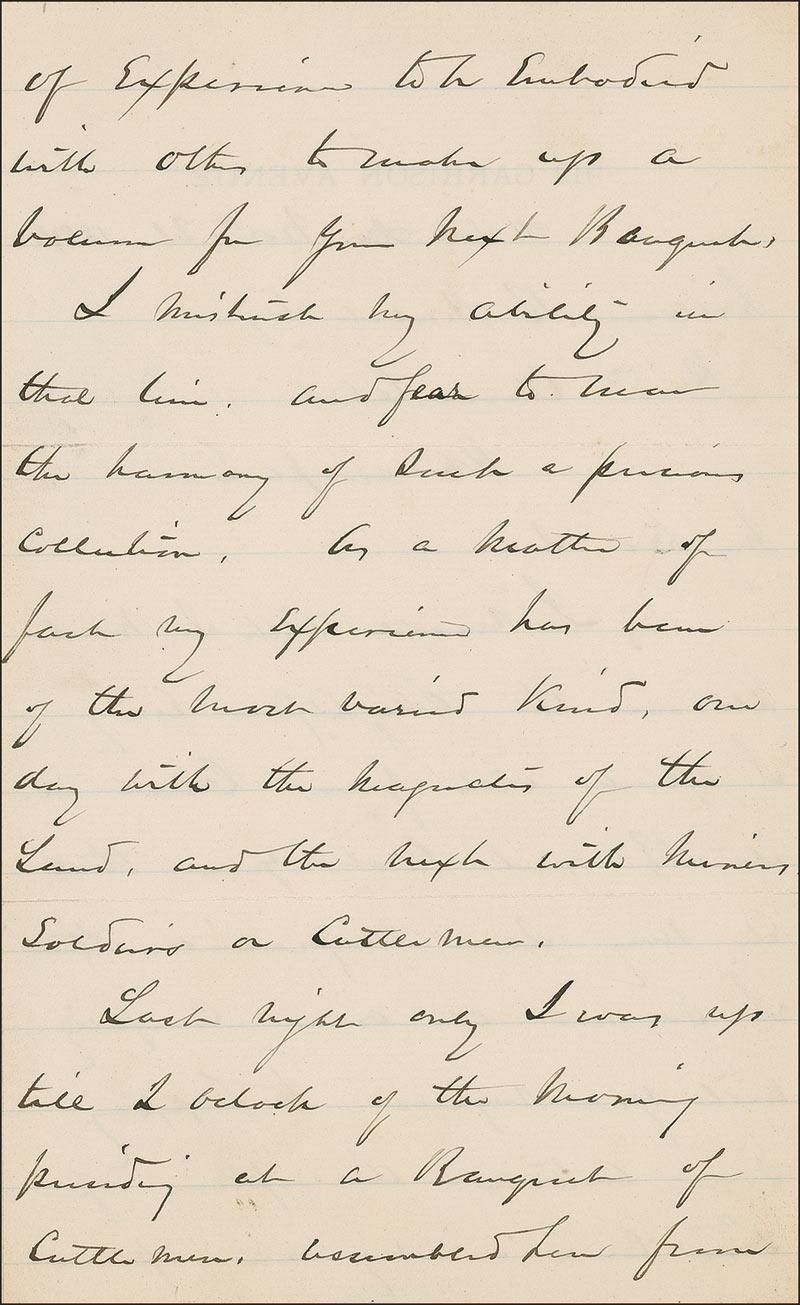 of Experience to be Embodied
with others to make up a
volume for your next Banquet,
I mistrust my ability in
that line. and fear to mar
the harmony of such a precious
Collection. As a matter of
fact my Experience has been
of the most varied Kind, one
day with the magnates of the
Land, and the next with Miners
Soldiers or Cattle men.
Last night only I was up
till 2 oclock of the morning
presiding at a Banquet of
Cattle men. assembled here from